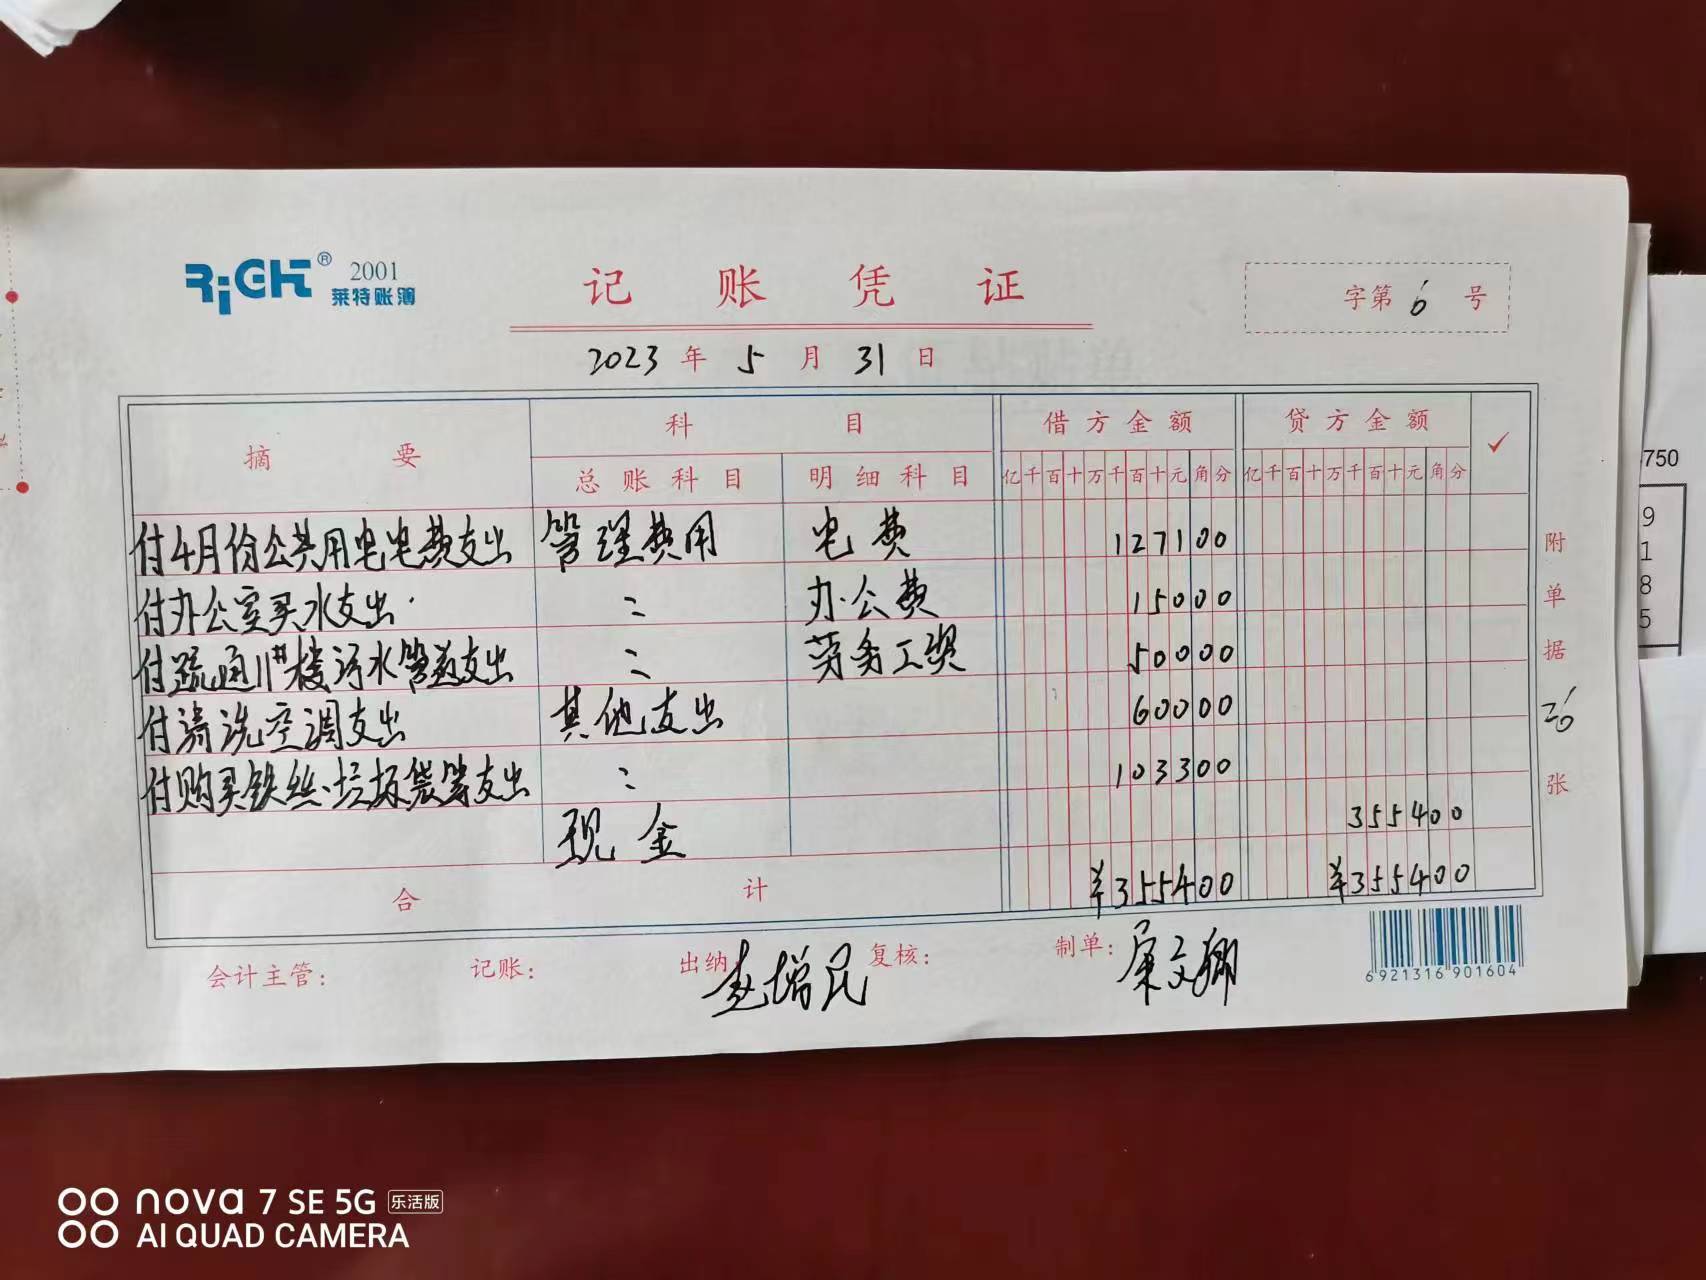 RiGHT® 2001
莱特账簿
记账凭证
字第 6 号
2023 年 5 月 31 日
摘要 科目 借方金额 贷方金额 ✓
总账科目 明细科目 亿千百十万千百十元角分 亿千百十万千百十元角分
付4月份公共用电电费支出 管理费用 电费 127100
付办公室买水支出. 〃 办公费 15000
付疏通11#楼污水管道支出 〃 劳务工资 50000
付清洗空调支出 其他支出 60000
付购买铁丝、垃圾袋等支出 〃 103300
现金 355400
合计 ¥355400 ¥355400
附单据 26 张
会计主管: 记账: 出纳: 赵增民 复核: 制单: 屈文娜
6 921316 901604
750
9
1
8
5
nova 7 SE 5G 乐活版
AI QUAD CAMERA